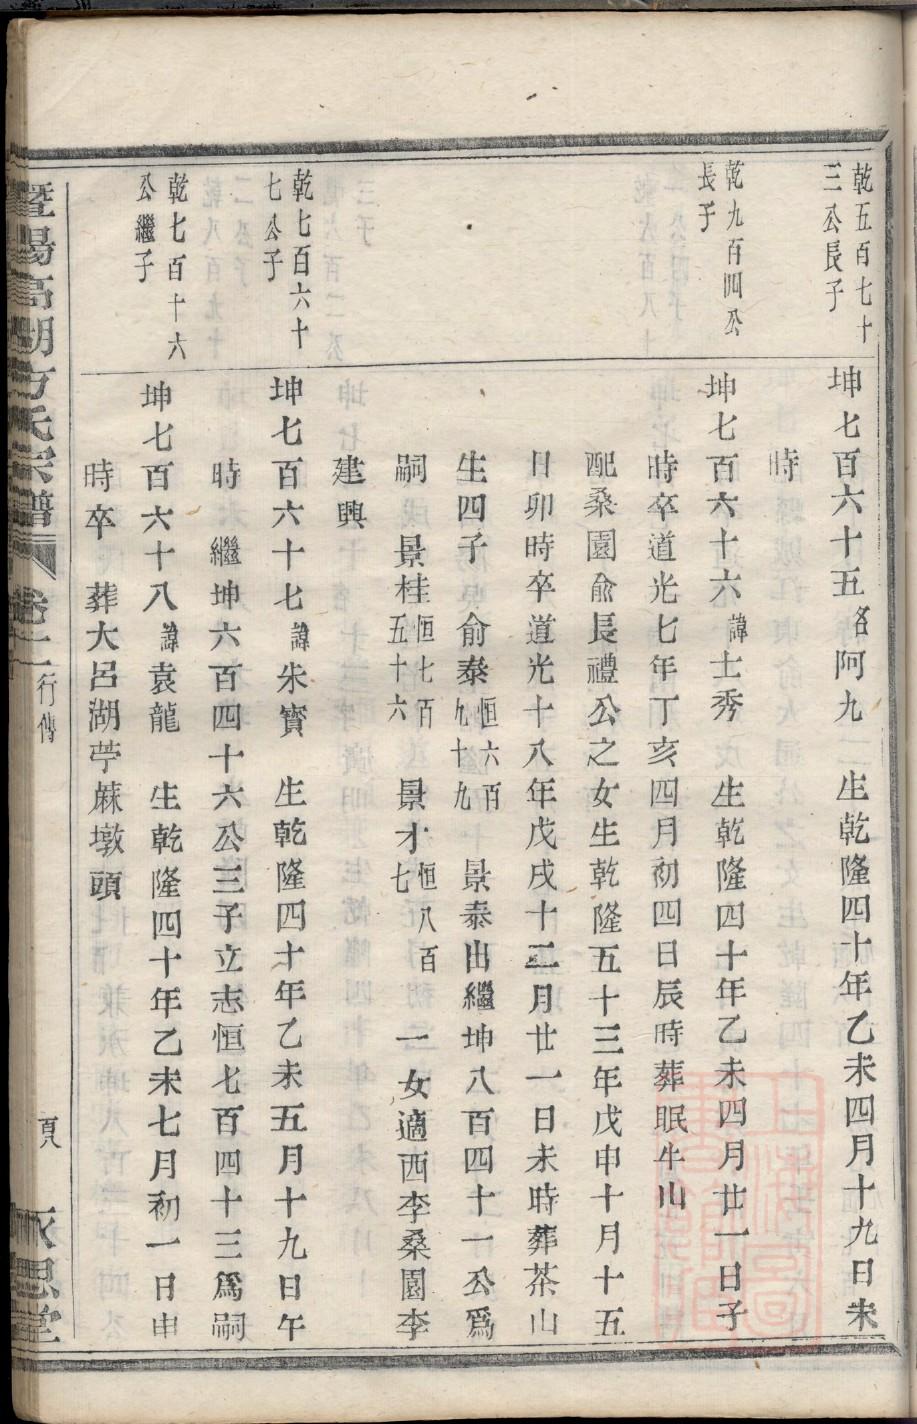 乾五百七十
三公長子
坤七百六十五名阿九　生乾隆四十年乙未四月十九日未
時
乾九百四公
長子
坤七百六十六諱士秀　生乾隆四十年乙未四月廿一日子
時卒道光七年丁亥四月初四日辰時葬眠牛山
配桑園俞長禮公之女生乾隆五十三年戊申十月十五
日卯時卒道光十八年戊戌十二月廿一日未時葬茶山
生四子　俞泰恒六百九十九　景泰出繼坤八百四十一公爲
嗣　景桂恒七百五十六　景才恒八百七　一女適西李桑園李
建興
乾七百六十
七公子
坤七百六十七諱朱寳　生乾隆四十年乙未五月十九日午
時　繼坤六百四十六公三子立志恒七百四十三爲嗣
乾七百十六
公繼子
坤七百六十八諱袁龍　生乾隆四十年乙未七月初一日申
時卒　葬大呂湖苧蔴墩頭
暨陽高湖方氏宗譜　卷十二　行傳　頁　永思堂